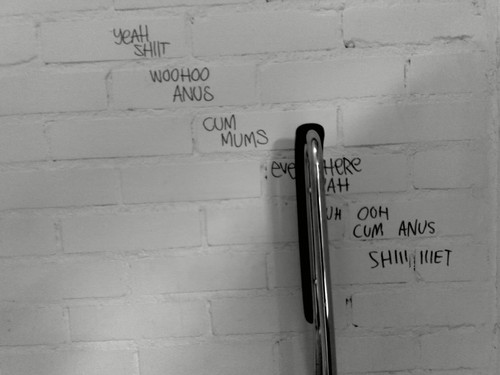 YEAH
SHIIT
WOOHOO
ANUS
CUM
MUMS
UH OOH
CUM ANUS
SHIIIIIIIET